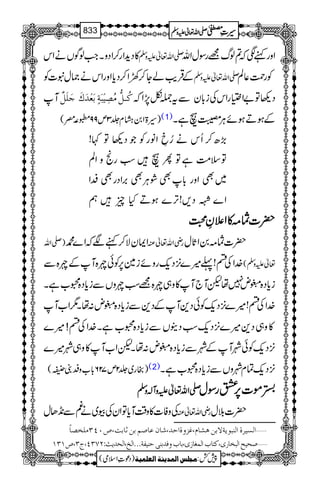 سیرتِ مصطفیٰ صلی اللہ تعالیٰ علیہ وسلم 833
اور کہنے لگی کہ تم لوگ مجھے رسول اللہ صلی اللہ تعالیٰ علیہ وسلم کا دیدار کرا دو۔ جب لوگوں نے اس
کو رحمت عالم صلی اللہ تعالیٰ علیہ وسلم کے قریب لے جا کر کھڑا کر دیا اور اس نے جمال نبوت کو
دیکھا تو بے اختیار اس کی زبان سے یہ جملہ نکل پڑا کہ کُلُّ مُصِیْبَۃٍ بَعْدَکَ جَلَلٌ آپ
کے ہوتے ہوئے ہر مصیبت ہیچ ہے۔(1) (سیرۃ ابن ہشام جلد ۳ ص ۹۹ مطبوعہ مصر)
بڑھ کر اس نے رُخِ انور کو جو دیکھا تو کہا!
تو سلامت ہے تو پھر ہیچ ہیں سب رنج و الم
میں بھی اور باپ بھی شوہر بھی برادر بھی فدا
اے شہ دیں! ترے ہوتے کیا چیز ہیں ہم
حضرت ثمامہ کا اعلانِ محبت
حضرت ثمامہ بن اثال رضی اللہ تعالیٰ عنہ ایمان لا کر کہنے لگے کہ اے محمد! (صلی اللہ
تعالیٰ علیہ وسلم) خدا کی قسم! پہلے میرے نزدیک روئے زمین پر کوئی چہرہ آپ کے چہرے سے
زیادہ مبغوض نہیں تھا لیکن آج آپ کا وہی چہرہ مجھے سب چہروں سے زیادہ محبوب ہے۔
خدا کی قسم! میرے نزدیک کوئی دین آپ کے دین سے زیادہ مبغوض نہ تھا۔ مگر اب آپ
کا وہی دین میرے نزدیک سب دینوں سے زیادہ محبوب ہے۔ خدا کی قسم! میرے
نزدیک کوئی شہر آپ کے شہر سے زیادہ مبغوض نہ تھا۔ لیکن اب آپ کا وہی شہر میرے
نزدیک تمام شہروں سے زیادہ محبوب ہے۔(2) (بخاری جلد ۲ ص ۶۲۷ باب وفد بنی حنیفہ)
بسترِ موت پر عشقِ رسول صلی اللہ تعالیٰ علیہ والہ وسلم
حضرت بلال رضی اللہ تعالیٰ عنہ کی وفات کا وقت آیا تو ان کی بیوی نے غم سے نڈھال
.....السیرۃ النبویۃ لابن ھشام،غزوۃ احد،شان عاصم بن ثابت،ص۳٤۰ ملخصاً
.....صحیح البخاری،کتاب المغازی،باب وفد بنی حنیفۃ...الخ،الحدیث:٤۳۷۲،ج۳،ص۱۳۱
پیش کش: مجلس المدینۃ العلمیۃ (دعوت اسلامی)